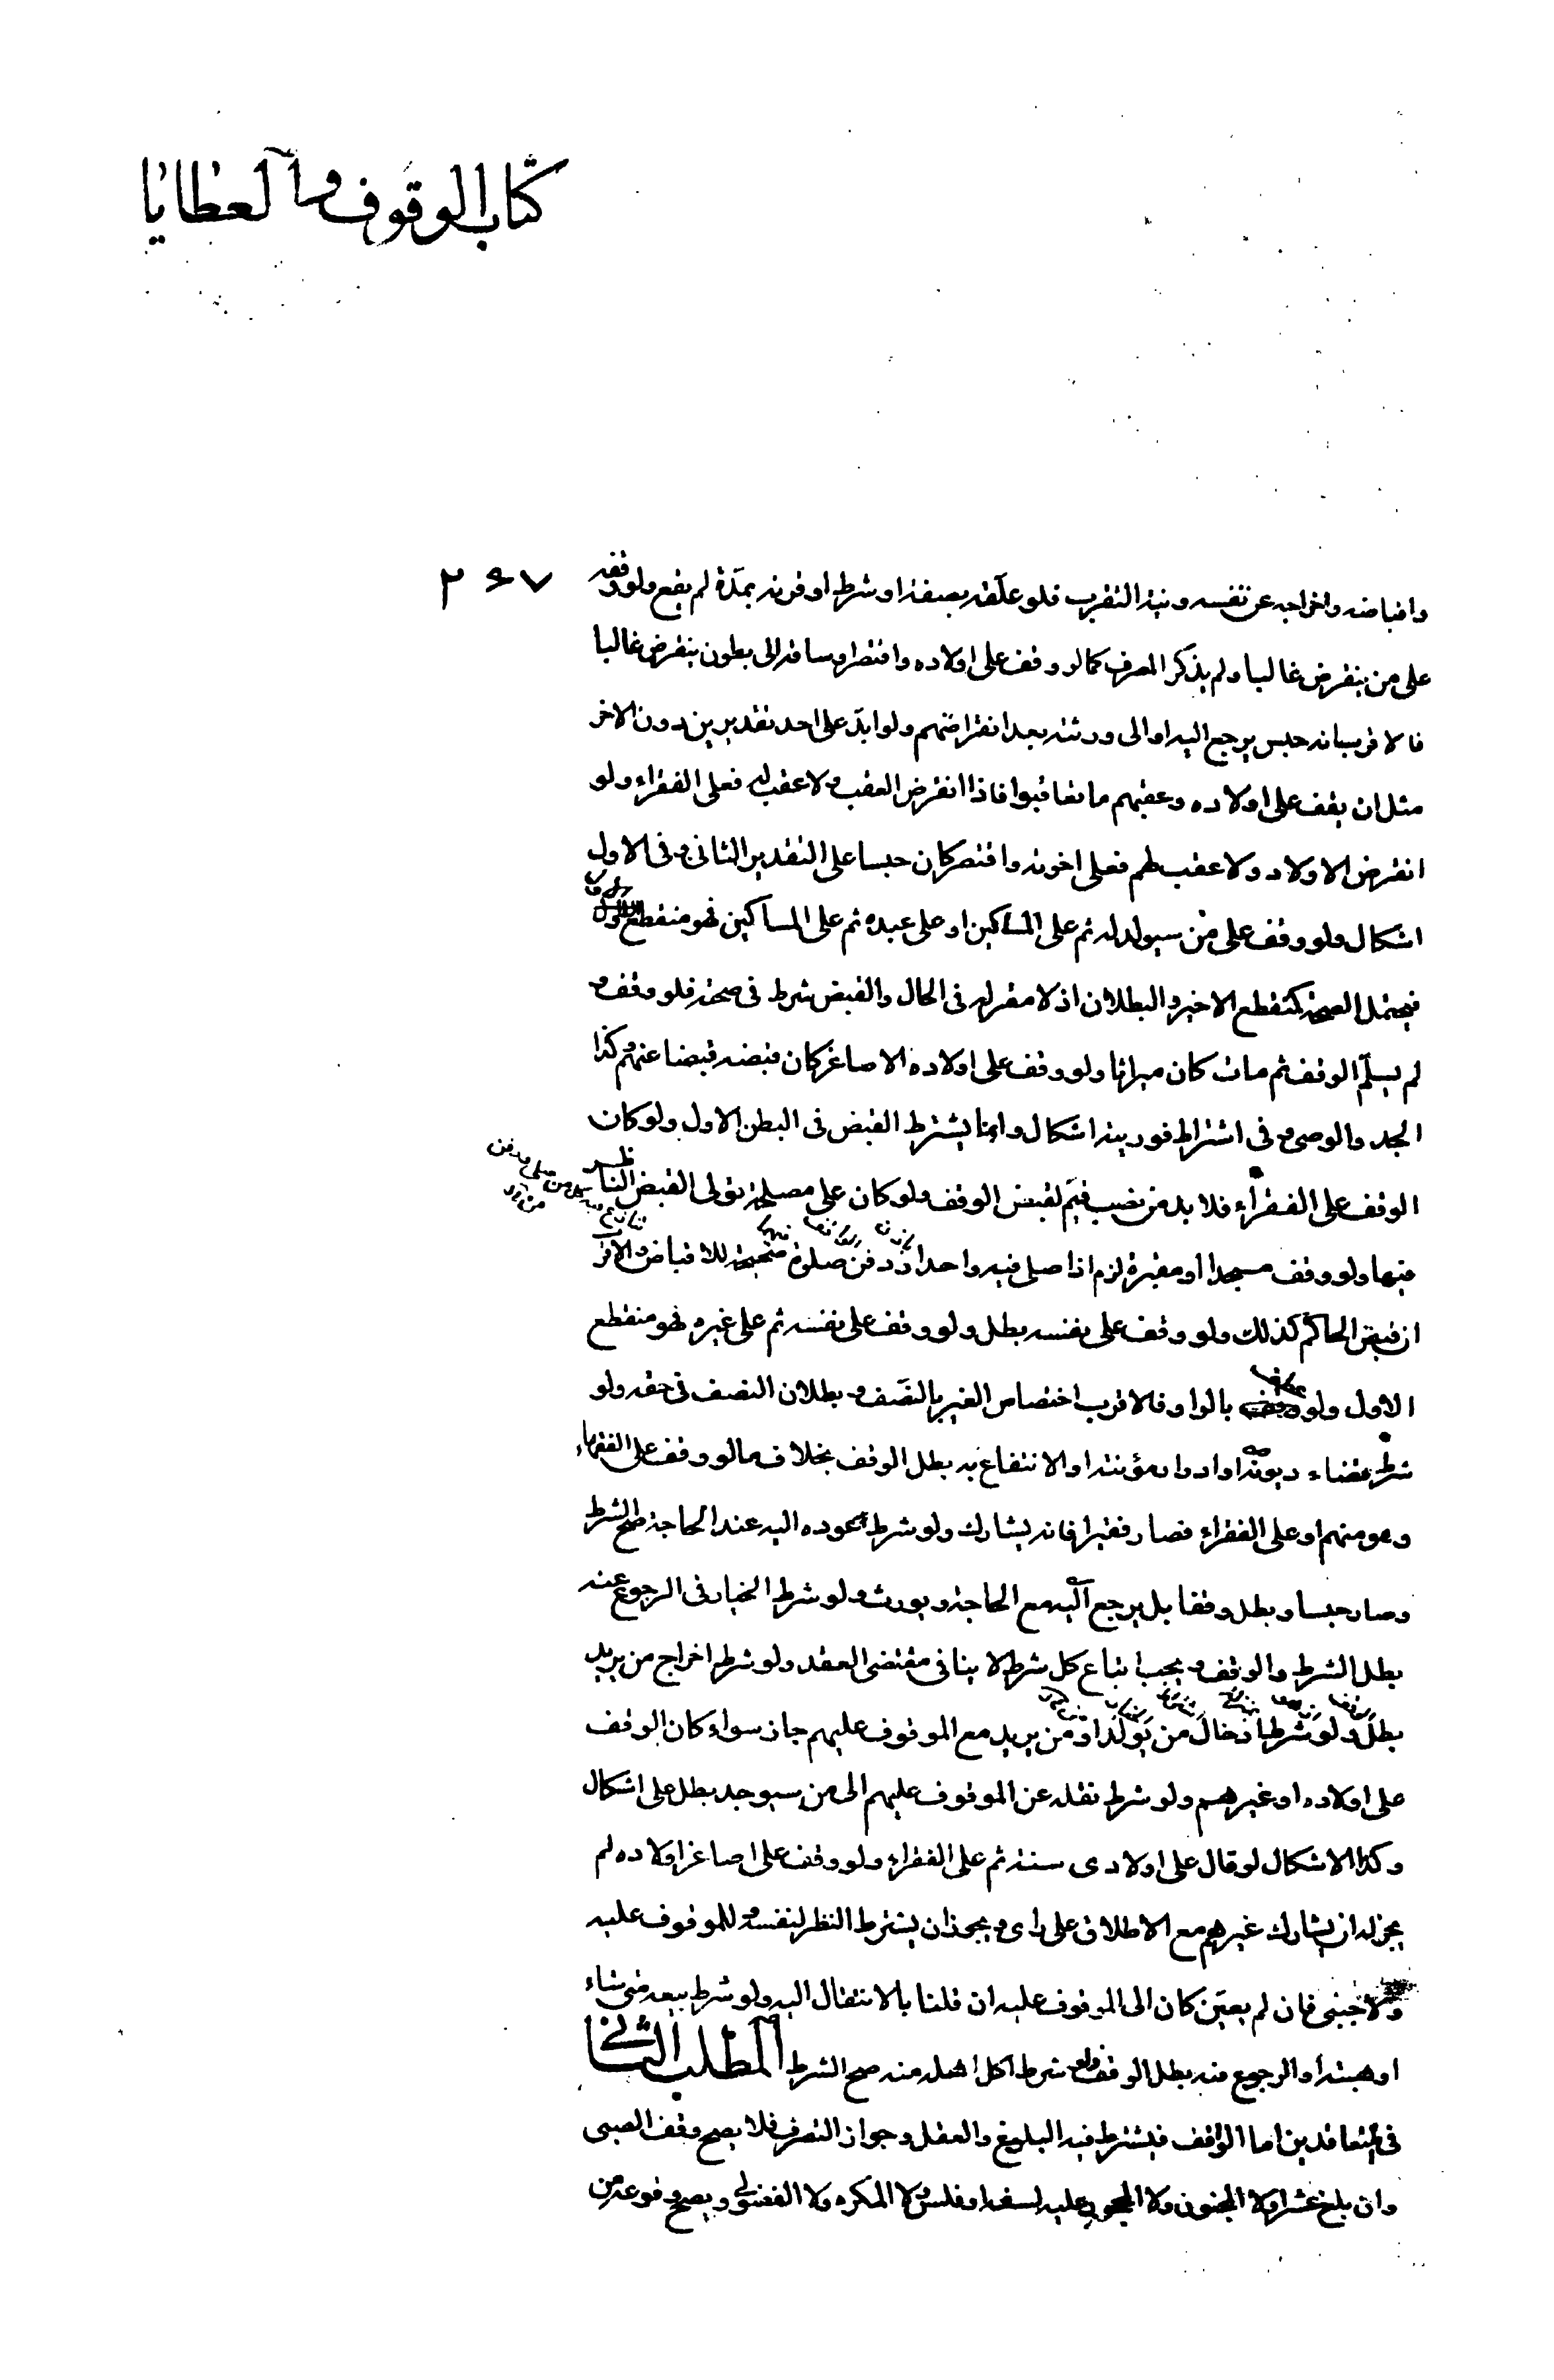 كتاب الوقوف والعطايا
٢٤٧
واقباضه واخراجه عن نفسه ونية التقرب فلو علّقه بصفة او شرط او قرنه بمدّة لم يقع ولو وقفه
على من ينقرض غالبا ولم يذكر المصرف كما لو وقف على اولاده واقتصر او ساقه الى بطون ينقرض غالبا
فالاقرب انه حبس يرجع اليه او الى ورثته بعد انقراضهم ولو ابدّ على احد تقديرين دون الاخر
مثل ان يقف على اولاده وعقبهم ما تعاقبوا فاذا انقرض العقب ولا عقب له فعلى الفقراء ولو
انقرض الاولاد ولا عقب لهم فعلى اخوته واقتصر كان حبسا على التقدير الثاني وفى الاول
اشكال ولو وقف على من سيولد له ثم على المساكين او على عبده ثم على المساكين فهو منقطع الاول
فيحتمل الصحة كمنقطع الاخير والبطلان اذ لا مقر له فى الحال والقبض شرط فى صحته فلو وقف و
لم يسلّم الوقف ثم مات كان ميراثا ولو وقف على اولاده الاصاغر كان قبضه قبضا عنهم وكذا
الجد والوصى وفى اشتراط فوريته اشكال وانما يشترط القبض فى البطن الاول ولو كان
الوقف على الفقراء فلا بد من نصب قيّم لقبض الوقف ولو كان على مصلحة تولى القبض الناظر
فيها ولو وقف مسجدا او مقبرة لزم اذا صلى فيه واحد او دفن صلوة صحيحة للاقباض والاقرب
ان قبض الحاكم كذلك ولو وقف على نفسه بطل ولو وقف على نفسه ثم على غيره فهو منقطع
الاول ولو عطف بالواو فالاقرب اختصاص الغير بالنصف وبطلان النصف فى حقه ولو
شرط قضاء ديونه او ادرار مؤنته او الانتفاع به بطل الوقف بخلاف ما لو وقف على الفقهاء
وهو منهم او على الفقراء فصار فقيرا فانه يشارك ولو شرط عوده اليه عند الحاجة صح الشرط
وصار حبسا وبطل وقفا بل يرجع اليه مع الحاجة ويورث ولو شرط الخيار فى الرجوع عنه
بطل الشرط والوقف ويجب اتباع كل شرط لا ينافى مقتضى العقد ولو شرط اخراج من يريد
بطل ولو شرط ادخال من يولد او من يريد مع الموقوف عليهم جاز سواء كان الوقف
على اولاده او غيرهم ولو شرط نقله عن الموقوف عليهم الى من سيوجد بطل على اشكال
وكذا الاشكال لو قال على اولادى سنة ثم على الفقراء ولو وقف على اصاغر اولاده لم
يجز له ان يشارك غيرهم مع الاطلاق على راى ويجوز ان يشترط النظر لنفسه وللموقوف عليه
ولاجنبى فان لم يعيّن كان الى الموقوف عليه ان قلنا بالانتقال اليه ولو شرط بيعه متى شاء
او هبته او الرجوع فيه بطل الوقف ولو شرط اكل اهله منه صح الشرط المطلب الثانى
فى المتعاقدين اما الواقف فيشترط فيه البلوغ والعقل وجواز التصرف فلا يصح وقف الصبى
وان بلغ عشرا ولا المجنون ولا المحجور عليه لسفه او فلس ولا المكره ولا الفضولى ويصح وقوعه من